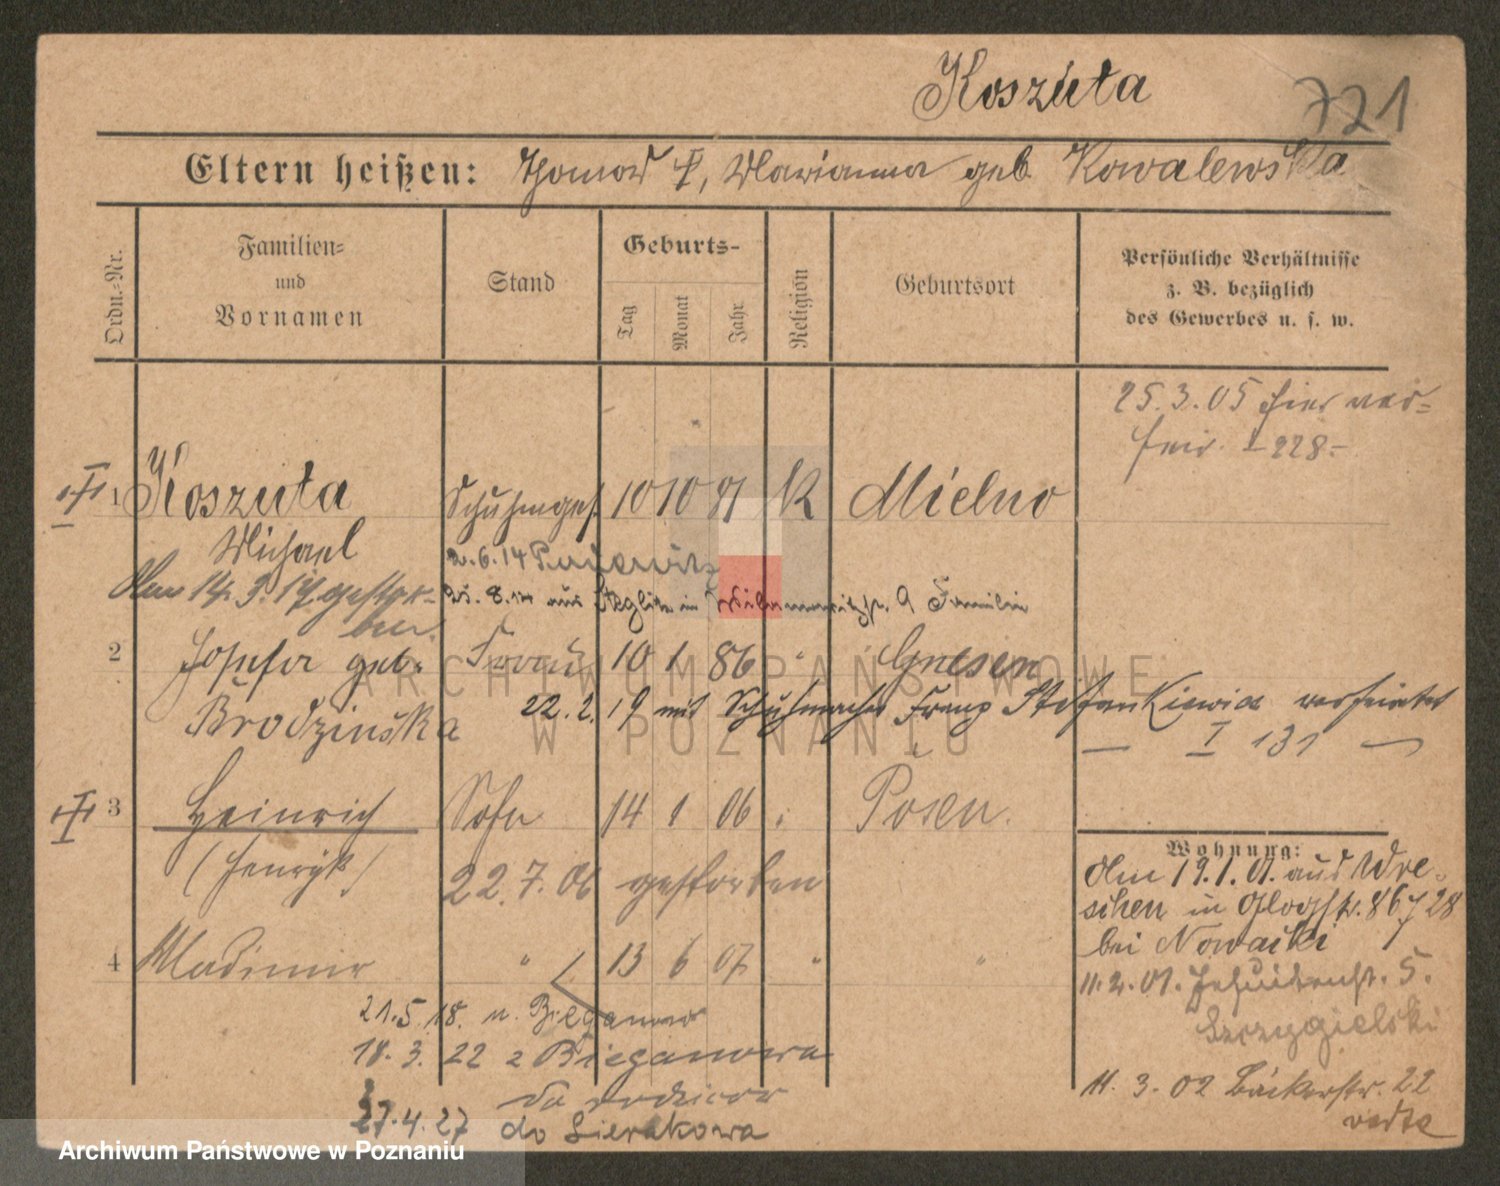 Koszuta
721
Eltern heißen: Thomas †, Marianna geb. Kowalewska
Ordn.-Nr.
Familien- und Vornamen
Stand
Geburts-
Tag
Monat
Jahr
Religion
Geburtsort
Persönliche Verhältnisse
z. B. bezüglich
des Gewerbes u. s. w.
25.3.05 hier ver=
heir. I 228.-
1 Koszuta Schuhmges. 10 10 K Mielno
Michael
2.6.14 Pudewitz
Am 14.3.17 gestor-
ben.
25.8. aus in 9 Familie
2 Josefa geb. Frau 10 1 86 " Gnesen
Brodzinska
22.2.19 mit Schuhmacher Franz Stefankiewicz verheiratet
— I 131 —
3 Heinrich Sohn 14 1 06 Posen.
(Henryk)
22.7.06 gestorben
4 Wladimir " 13 6 07 " "
21.5.18. n. Bieganowo
18.3.22 z Bieganowa
do rodziców
27.4.27 do Sierakowa
Wohnung:
Am 19.1.01. aus Wre-
schen in Glogstr. 86 28
bei Nowacki
11.2.01. Jesuitenstr. 5.
Szczygielski
11.3.02 Bäckerstr. 22
ARCHIWUM PAŃSTWOWE
W POZNANIU
Archiwum Państwowe w Poznaniu